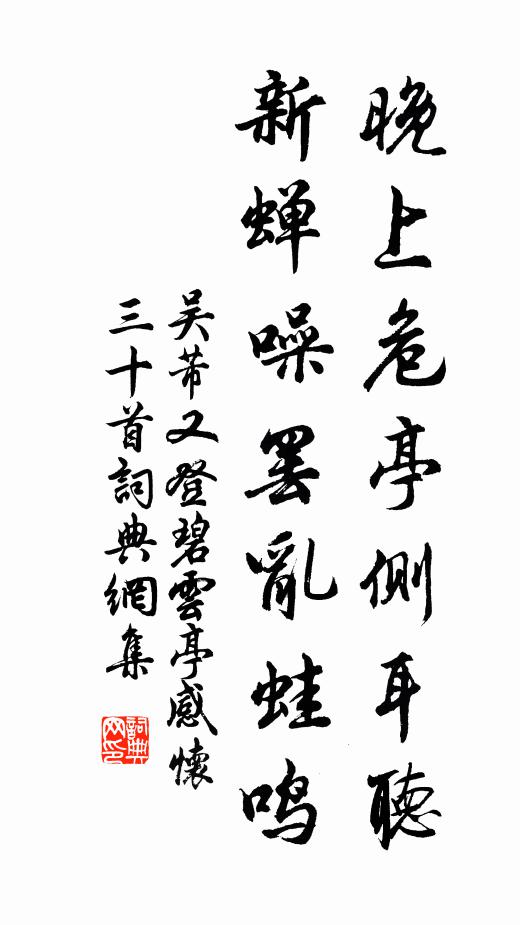 晚上危亭側耳聽
新蝉噪罢亂蛙鸣
吴芾又登碧雲亭感懷
三十首詞典網集
詞典
网印